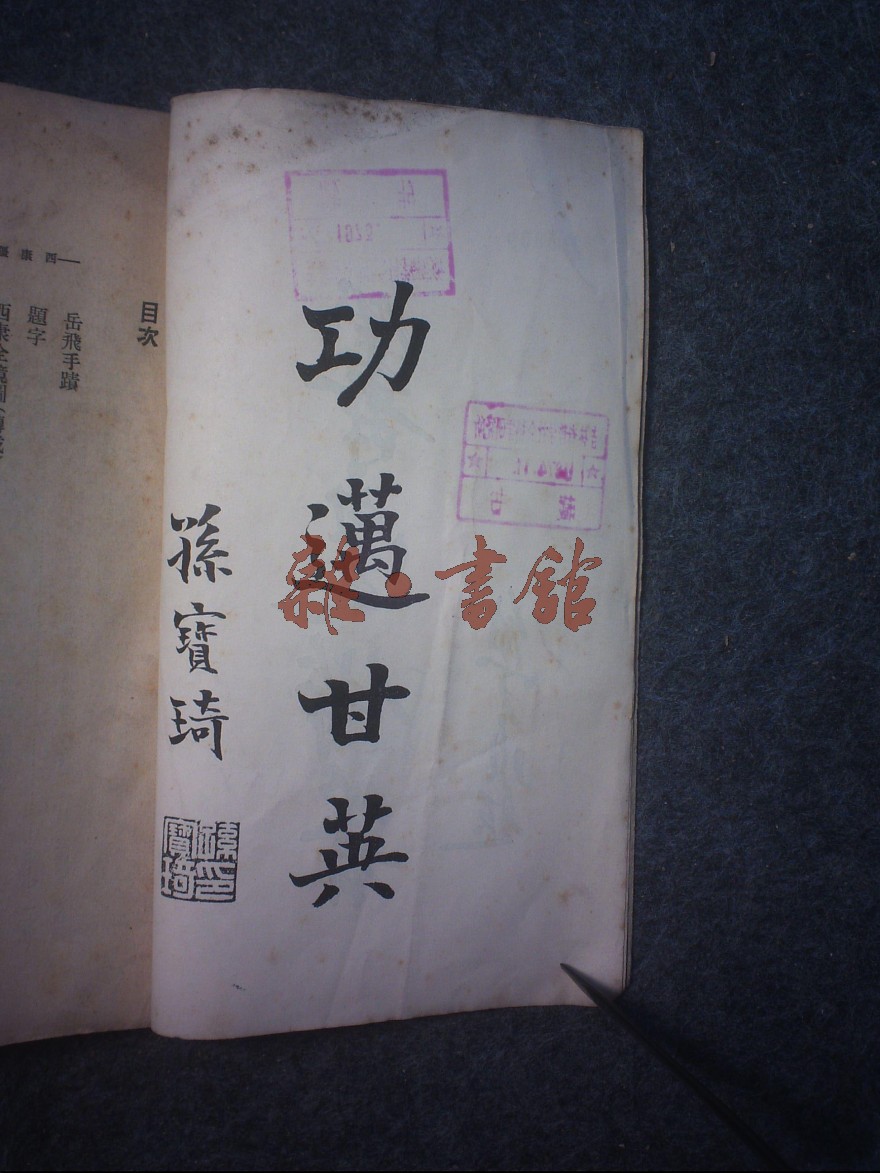 功邁甘英
孫寶琦
孫寶琦印
雜·書館
目次
岳飛手蹟
題字
西康全境圖
西康